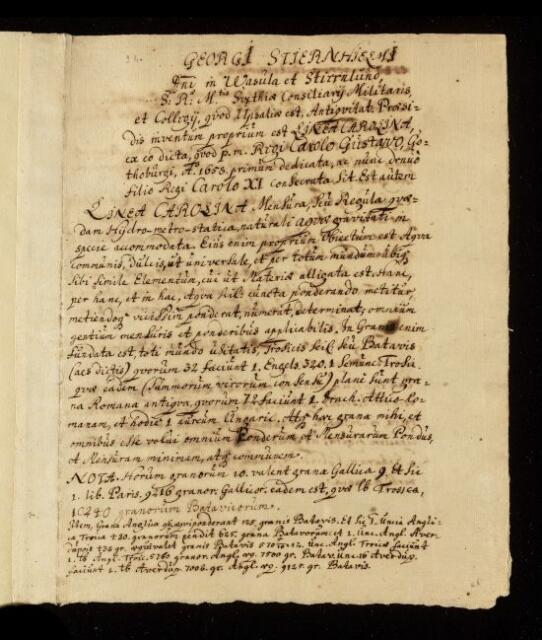 GEORGI STIERNHIELMI
Dni in Wasula et Stiernlund,
S. R. M.tis Svethiæ Consiliarij Militaris,
et Collegij, qvod Upsaliæ est, Antiqvitat. Præsi-
dis inventum proprium est LINEA CAROLINA,
ex eo dicta, qvod p. m. Regi Carolo Gustavo, Go-
thoburgi, Aº. 1658. primum dedicata, ac nunc denuo
filio Regi Carolo XI consecrata sit. Est autem
LINEA CAROLINA Mensura, seu Regula qvæ-
dam Hydro-metro-statica, naturali aqvæ gravitati in
specie accommodata. Ejus enim proprium Objectum est Aqva
communis, dulcis, ut universale, et per totum mundum ubiq
sibi simile Elementum, cui ut Materiæ alligata est. Hanc,
per hanc, et in hac, Aqva cuncta ponderando metitur,
metiendoq vicissim ponderat, numerat, determinat, omnium
gentium mensuris et ponderibus applicabilis. In Granis enim
fundata est, toti mundo usitatis, Troicis scil. seu Batavis
(aes dictis) qvorum 32 faciunt 1. Engels. 320. 1 Semunc. Troic.
qvæ eadem (summorum virorum consensu) plane sunt gra-
na Romana antiqva, qvorum 72 faciunt 1. Drach. Atticò-Ro-
manam, et hodie 1 aureum Ungaric. Atq hæc grana mihi, et
omnibus esse volui omnium Ponderum, et Mensurarum Pondus,
et Mensuram minimam, atq communem.
NOTA. Horum granorum 10. valent grana Gallica 9. et sic
1. lib. Paris. 9216 granor. Gallicor. eadem est, qvæ lb Troica,
10240 granorum Batavicorum.
Item, Grana Anglica æqviponderant 125. granis Batavis. Et sic 1. Uncia Angli-
ca Troica 480. granorum pendit 625. grana Batavorum; et 1. Unc. Angl. Aver-
dupois 438 gr. æqvivalet granis Batavis 570 12. Unc. Angl. Troicæ faciunt
1. lb. Angl. Troic. 5760 granor. Angl. vel 7500 gr. Batav. Unc. 16 Averdup.
faciunt 1. lb Averdup 7008. gr. Angl. 9125. gr. Batavis.